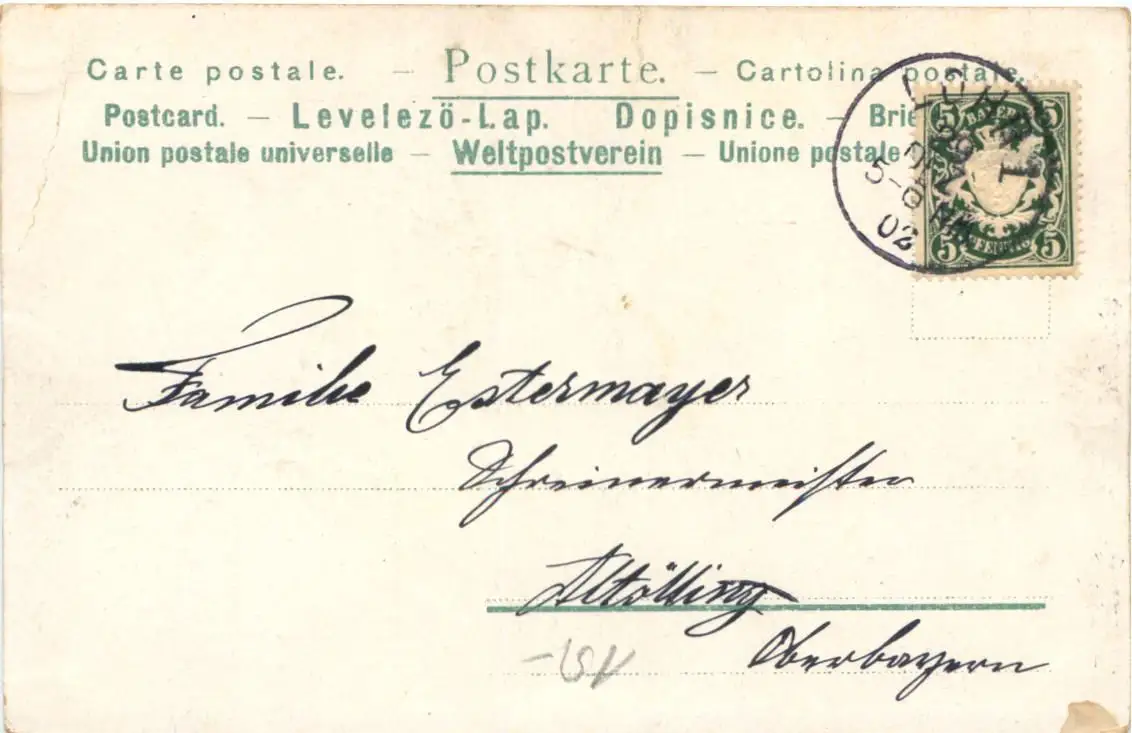 Carte postale. — Postkarte. — Cartolina postale.
Postcard. — Levelező-Lap. Dopisnice. — Brie
Union postale universelle — Weltpostverein — Unione postale
5 5
5-6 NM
02
5 PFENNIG 5
Familie Estermayer
Schreinermeister
Altötting
Oberbayern